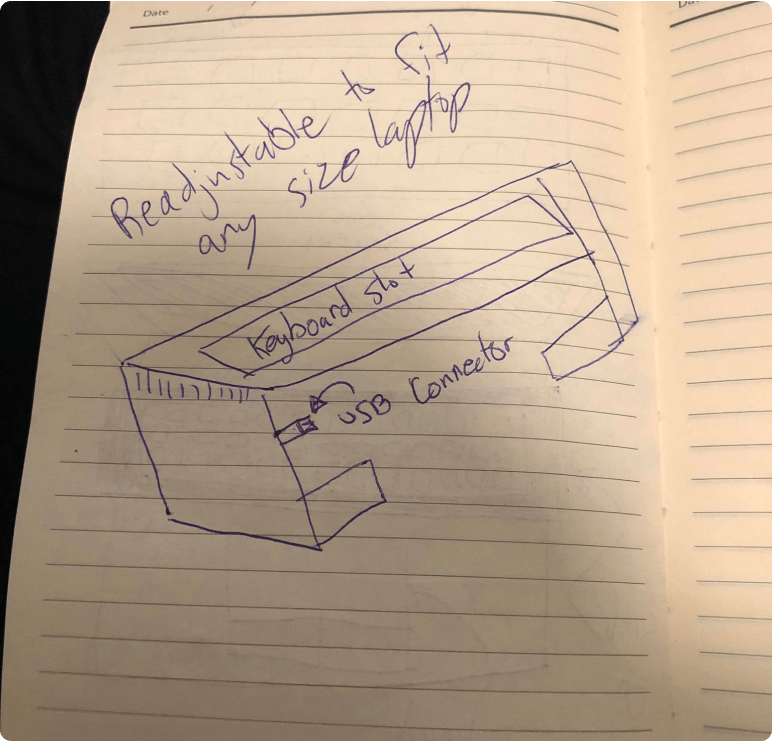 Date / /
Readjustable to fit
any size laptop
Keyboard slot
USB Connector